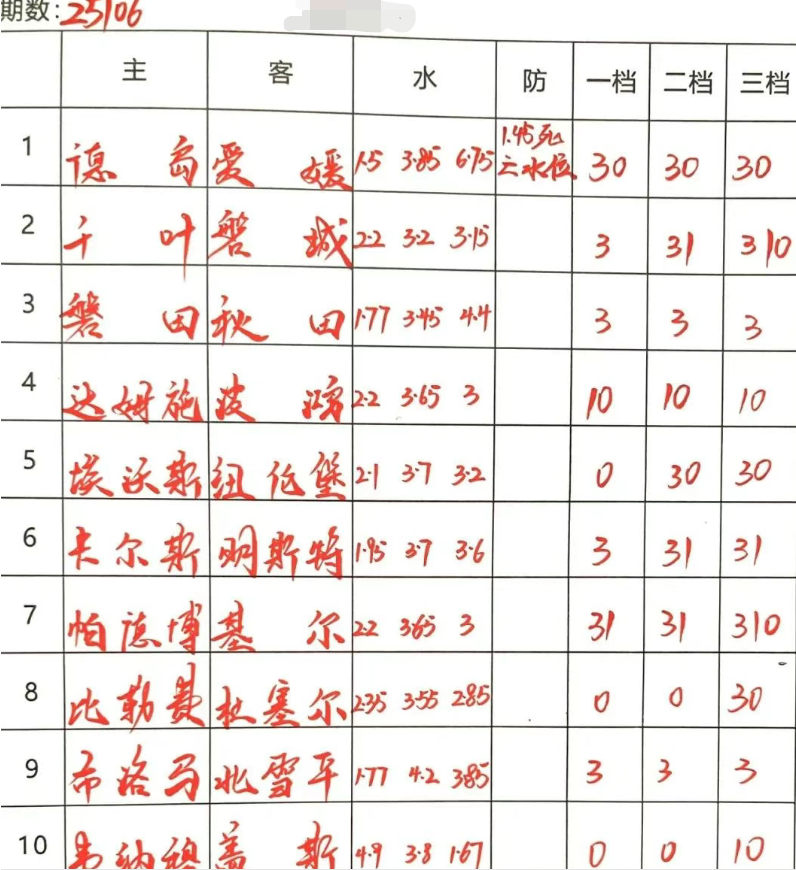 期数:25106
主 客 水 防 一档 二档 三档
1 德岛 爱媛 1.5 3.85 6.75 1.45死 二水位 30 30 30
2 千叶 磐城 2.2 3.2 3.15 3 31 310
3 磐田 秋田 1.77 3.45 4.4 3 3 3
4 达姆施 波鸿 2.2 3.65 3 10 10 10
5 埃沃斯 纽伦堡 2.1 3.7 3.2 0 30 30
6 卡尔斯 明斯特 1.95 3.7 3.6 3 31 31
7 帕德博 基尔 2.2 3.65 3 31 31 310
8 比勒费 杜塞尔 2.35 3.55 2.85 0 0 30
9 希洛马 北雪平 1.77 4.2 3.85 3 3 3
10 韦纳穆 盖斯 4.9 3.8 1.67 0 0 10